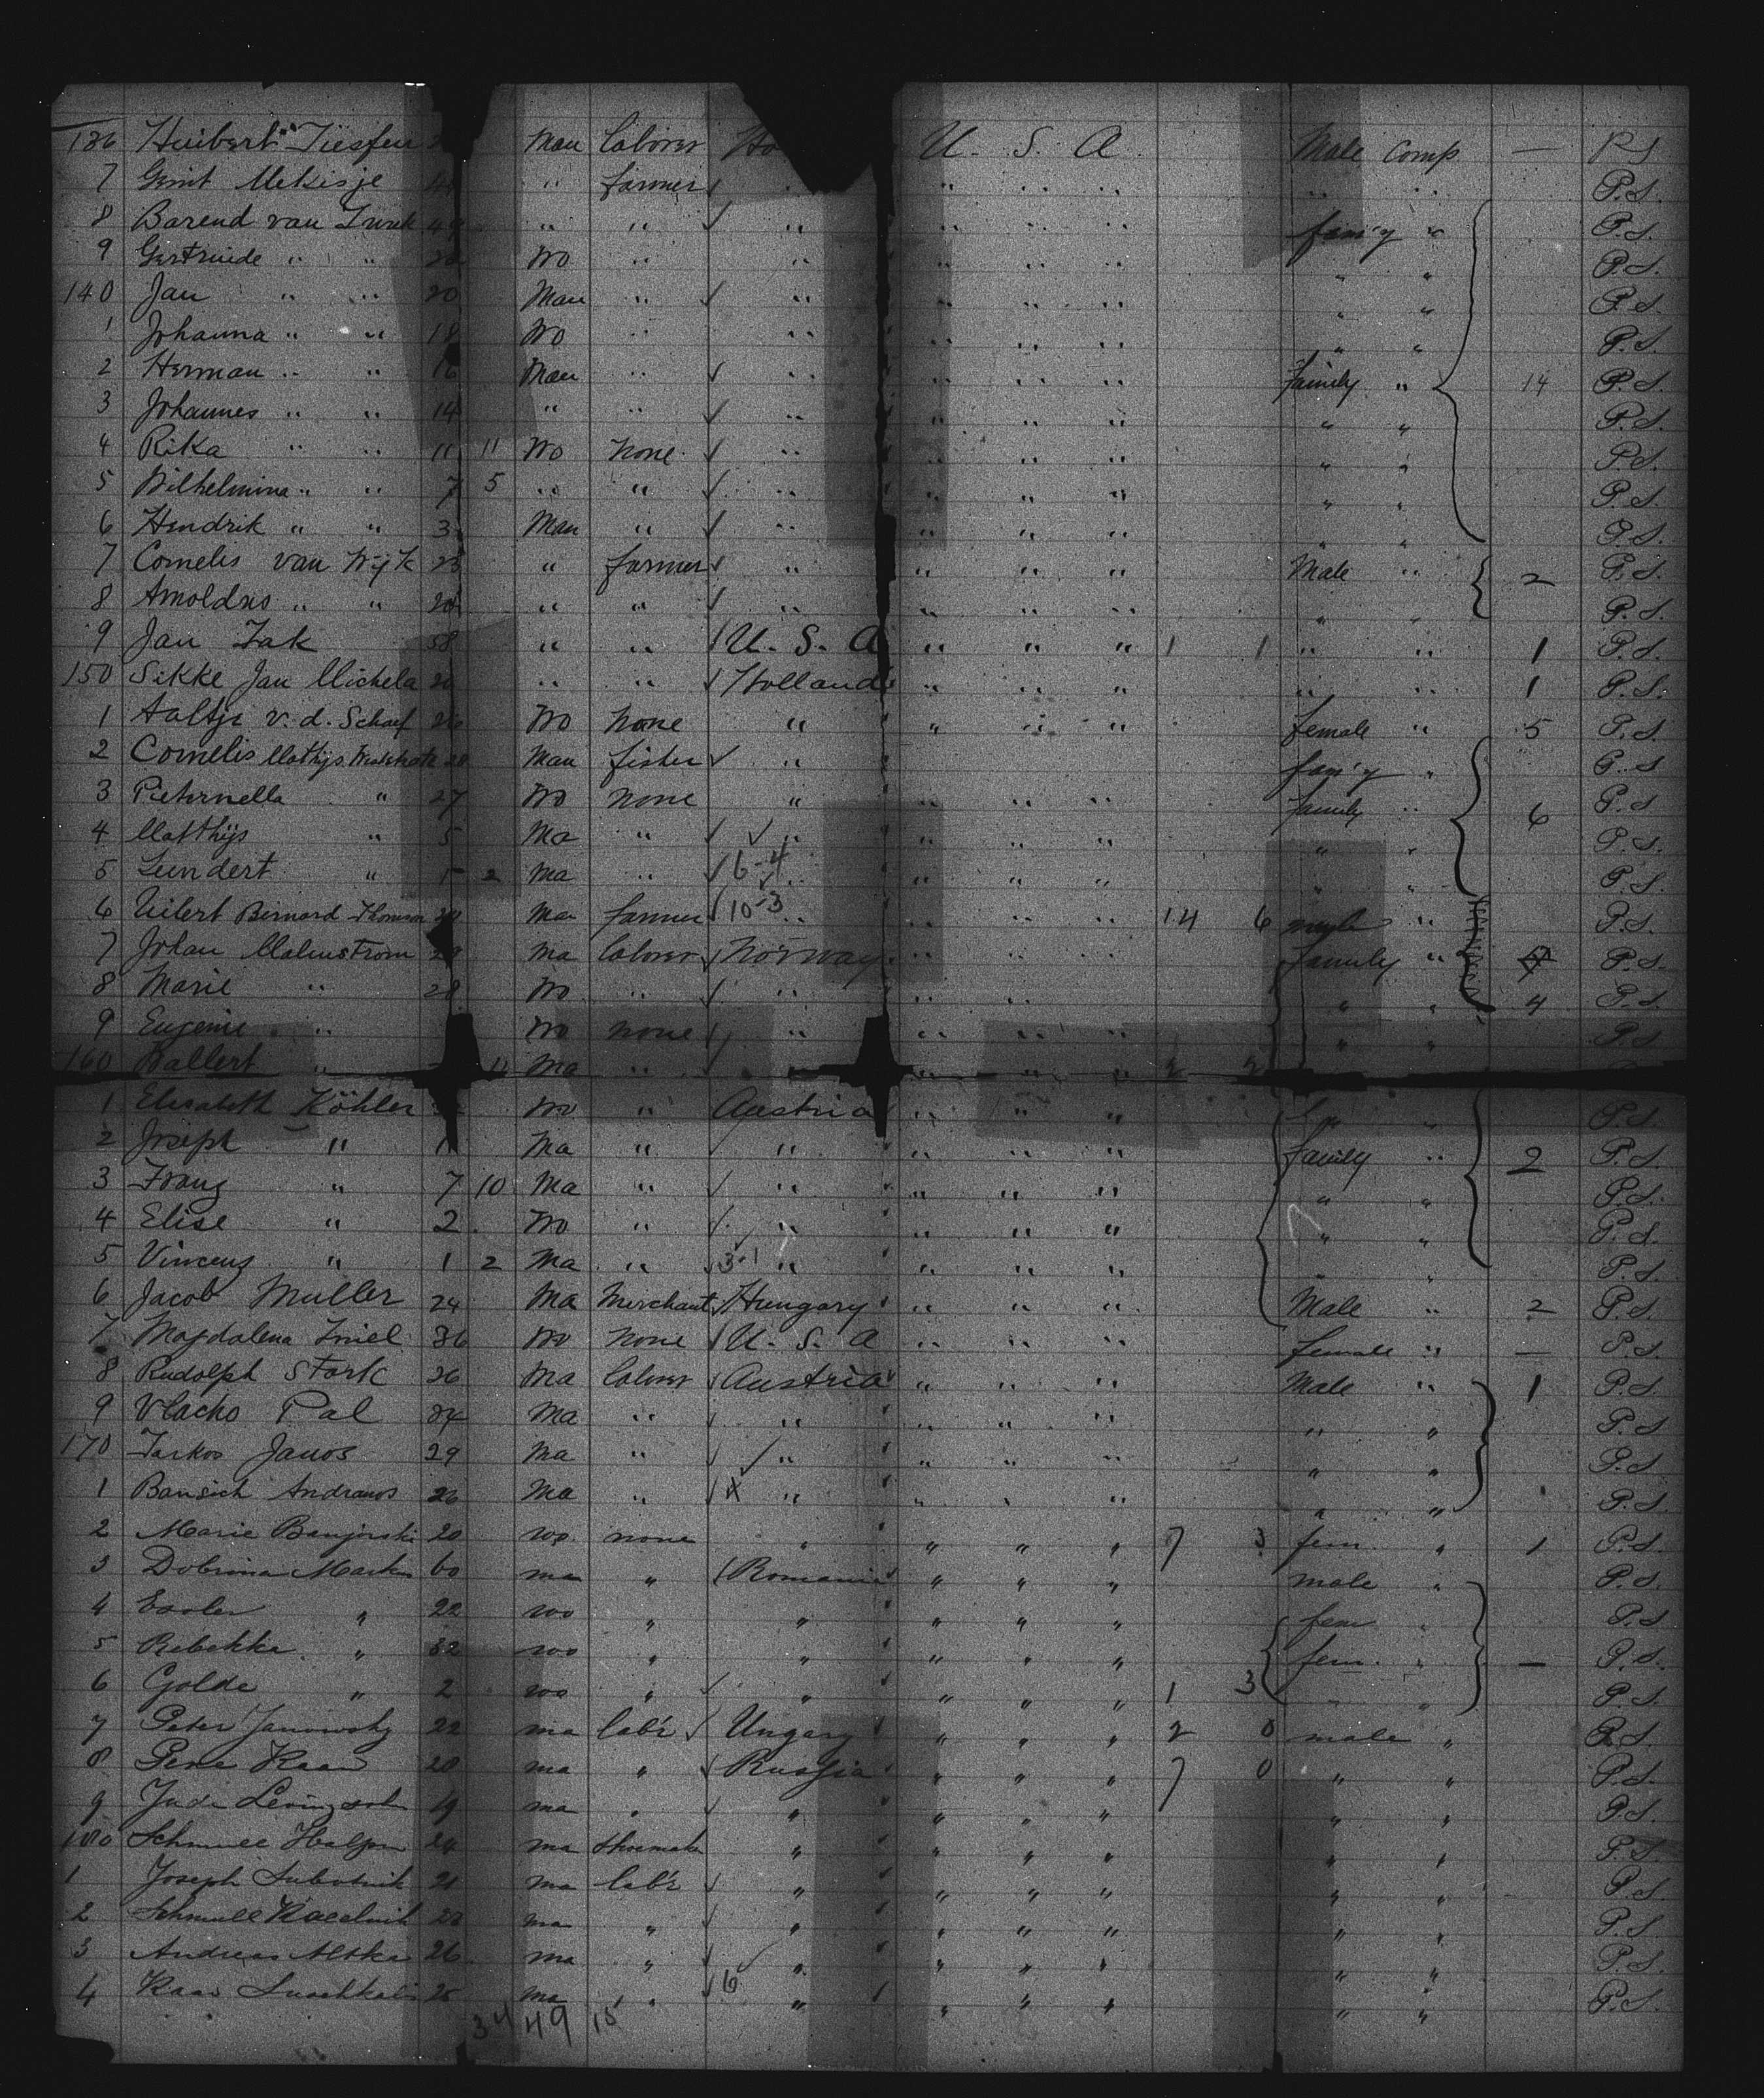 136 Huibert Tiesfen Man laborer Ho U. S. A. Male Comp — P.S.
7 Gerrit " farmer " " " " " " P.S.
8 Barend van 49 " " " " " " fam'y " P.S.
9 Gertruide " " Wo " " " " " " " P.S.
140 Jan " " 20 Man " " " " " " " P.S.
1 Johanna " " 18 Wo " " " " " " " P.S.
2 Herman " " 16 Man " " " " " Family " 14 P.S.
3 Johannes " " 14 " " " " " " " " P.S.
4 Rika " " 11 11 Wo None " " " " " " P.S.
5 Wilhelmina " " 7 5 " " " " " " " " P.S.
6 Hendrik " " 3 Man " " " " " " " P.S.
7 Cornelis van Wijk 23 " farmer " " " " Male " 2 P.S.
8 Arnoldus " " " " " " " " " " P.S.
9 Jan Tak 58 " " U. S. A " " " 1 1 " " 1 P.S.
150 Sikke Jan Michela " " Holland " " " " " 1 P.S.
1 Aaltje v. d. Schaef 26 Wo None " " " " female " 5 P.S.
2 Cornelis Mathijs 28 Man fisher " fam'y " P.S.
3 Pieternella " 27 Wo none " " " " family " 6 P.S.
4 Matthijs " 5 Ma " " " " " " " P.S.
5 Leendert " 1 2 Ma " 6-4 " " " " " " P.S.
6 Uilert Bernard Thomson Ma farmer 10-3 " " " " 14 6 single " P.S.
7 Johan Malmstrom 29 Ma laborer Norway " " " Family " P.S.
8 Marie " 28 Wo " " " " " " 4 P.S.
9 Eugenie " Wo none " " " " " " P.S.
160 Ballert " 11 Ma " " " " "
1 Elisabeth Köhler Wo " Austria " " " " P.S.
2 Joseph " 11 Ma " " " " " family " 2 P.S.
3 Franz " 7 10 Ma " " " " " " " P.S.
4 Elise " 2 Wo " " " " " " " P.S.
5 Vincenz " 1 2 Ma " 3-1 " " " " " " P.S.
6 Jacob Muller 24 Ma Merchant Hungary " " " Male " 2 P.S.
7 Magdalena 36 Wo None U. S. A " " " female " — P.S.
8 Rudolph Stark 26 Ma laborer Austria " " " Male " 1 P.S.
9 Vlacho Pal 34 Ma " " " " " " " P.S.
170 Tarkos Janos 29 Ma " " " " " " " P.S.
1 Bansich Andraws 26 Ma " " " " " " " P.S.
2 Marie Banjorski 20 wo none " " " " 7 3 fem. " 1 P.S.
3 Dobrina Markus 60 ma " Romania " " " male " P.S.
4 22 wo " " " " " fem " P.S.
5 Rebekka " 32 wo " " " " " fem. " — P.S.
6 Golde " 2 wo " " " " " 1 3 " " P.S.
7 Peter Janowsky 22 ma lab'r Ungary " " " 2 0 male " P.S.
8 20 ma " Russia " " " 7 0 " " P.S.
9 19 ma " " " " " " " P.S.
180 Schmuel Halpern 24 ma shoemaker " " " " " " P.S.
1 Joseph 21 ma lab'r " " " " " " P.S.
2 Schmuel ma " " " " " " " P.S.
3 Andreas 26 ma " " " " " " " P.S.
4 25 ma " 6 " " " " " " P.S.
34 49 15